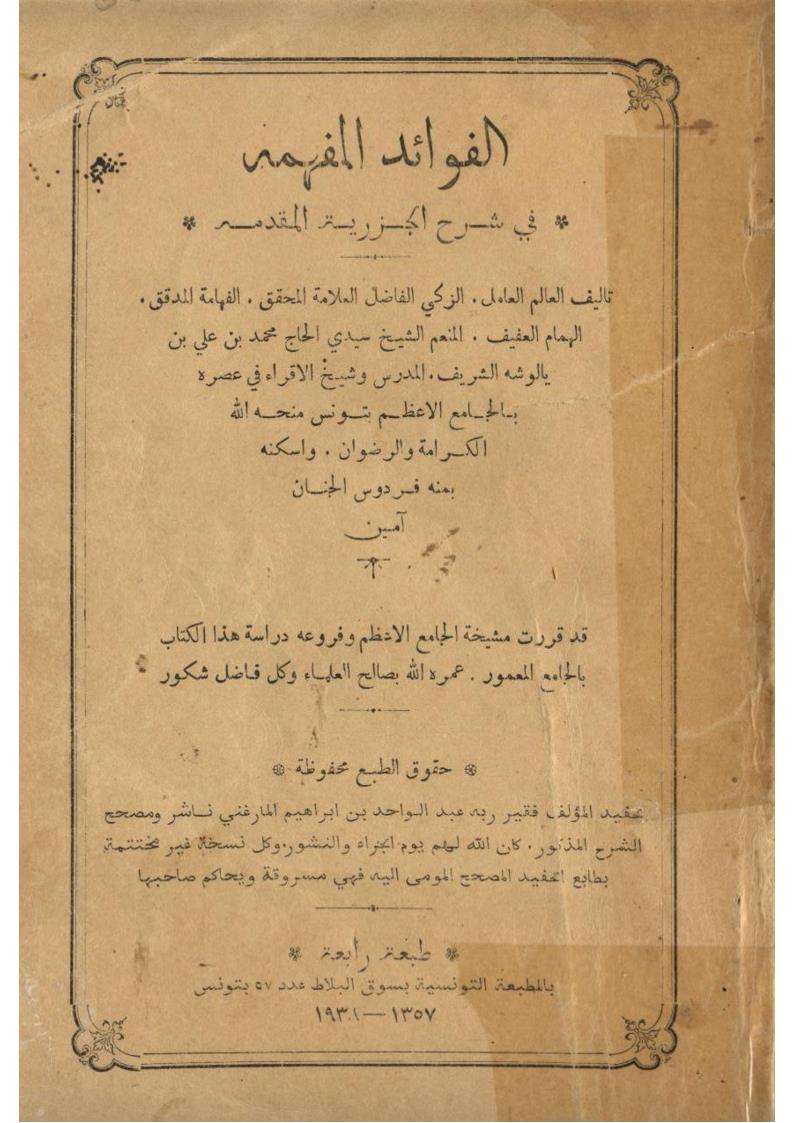 الفوائد المفهمه
* في شرح الجزرية المقدمه *
تاليف العالم العامل . الزكي الفاضل العلامة المحقق . الفهامة المدقق .
الهمام العفيف . المنعم الشيخ سيدي الحاج محمد بن علي بن
يالوشه الشريف . المدرس وشيخ الاقراء في عصره
بالجامع الاعظم بتونس منحه الله
الكرامة والرضوان . واسكنه
بمنه فردوس الجنان
آمين
قد قررت مشيخة الجامع الاعظم وفروعه دراسة هذا الكتاب
بالجامع المعمور . عمره الله بصالح العلماء وكل فاضل شكور
* حقوق الطبع محفوظة *
لحفيد المؤلف فقير ربه عبد الواحد بن ابراهيم المارغني ناشر ومصحح
الشرح المذكور . كان الله لهم يوم الجزاء والنشور . وكل نسخة غير مختتمة
بطابع الحفيد المصحح المومى اليه فهي مسروقة ويحاكم صاحبها
* طبعة رابعة *
بالمطبعة التونسية بسوق البلاط عدد ٥٧ بتونس
١٣٥٧ — ١٩٣٨